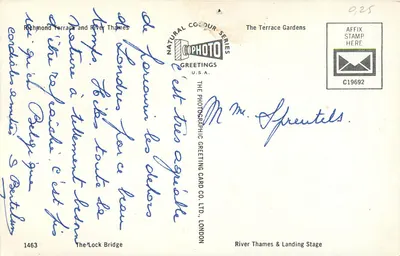 Richmond Terrace and River Thames
The Terrace Gardens
0,25
NATURAL COLOUR SERIES
PHOTO
GREETINGS
U.S.A.
AFFIX
STAMP
HERE
C19692
THE PHOTOGRAPHIC GREETING CARD CO. LTD., LONDON
C'est très agréable
de parcourir les dehors
de Londres par ce beau
temps. Hélas toute la
nature a tellement besoin
d'être rafraîchie. C'est pis
qu'en Belgique
cordialement S
M Mme. Sprentels.
1463
The Lock Bridge
River Thames & Landing Stage